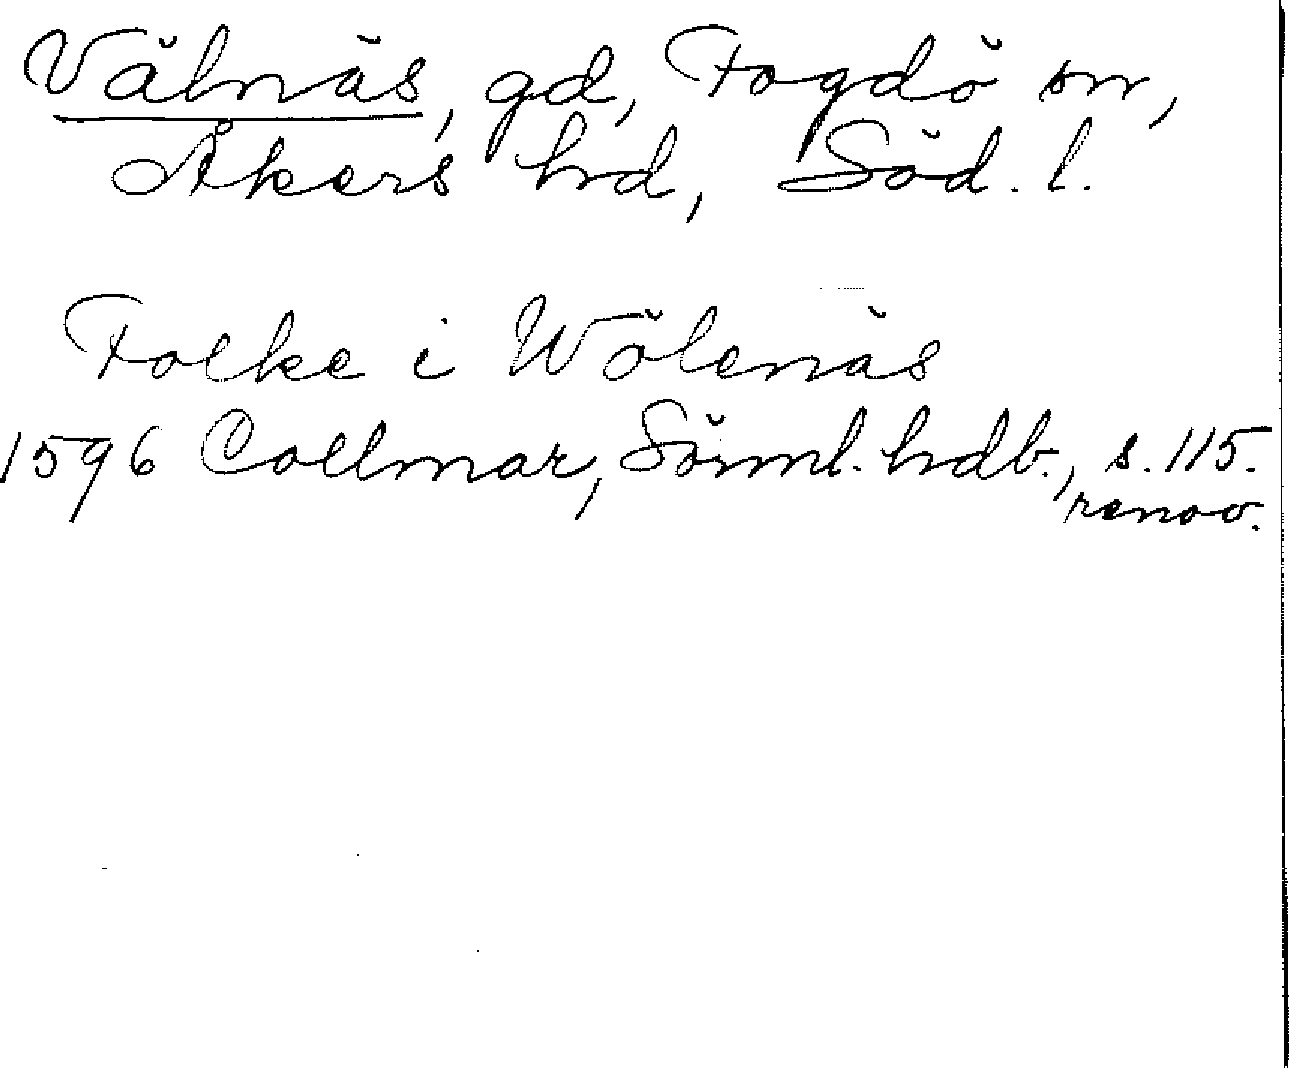 Välnäs, gd, Fogdö sn,
Åkers hd, Söd. l.
Folke i Wölenäs
1596 Collmar, Sörml. hdb., s. 115.
renov.